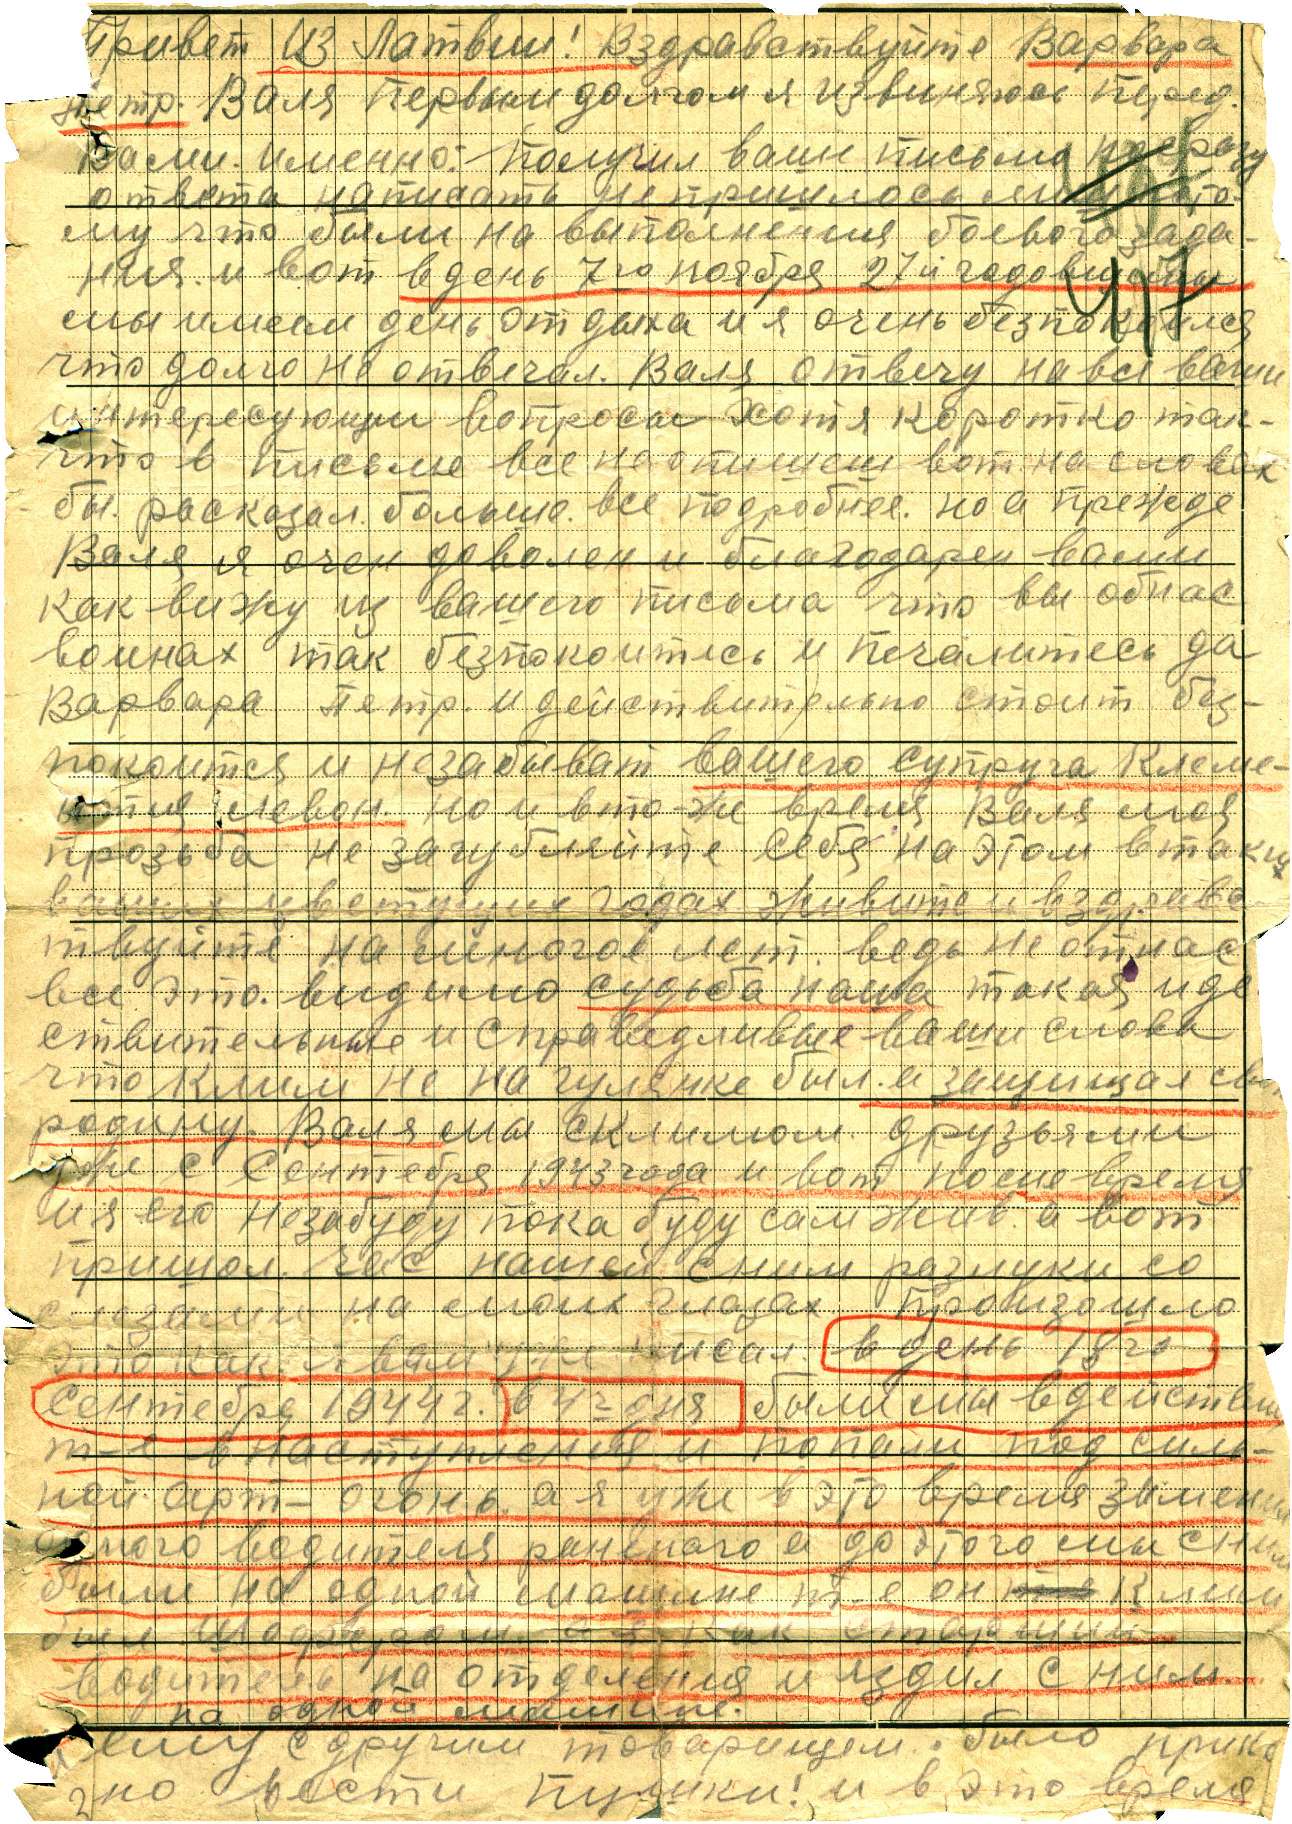 Привет из Латвии! Вздравствуйте Варвара
петр. Валя Первым долгом я извиняюсь перед.
Вами. именно:- получил ваше письмо не сразу
ответа написать непришлось мне пото-
му что были на выполнения боевого зада-
ния. и вот в день 7го ноября 27й годовщины
мы имеем день отдыха и я очень безпокоился
что долго не отвечал. Валя отвечу на все ваши
интересующии вопросы хотя коротко так-
что в письме все неопишеш вот на словах
бы. расказал. больше. все подробнее. но а прежде
Валя я очен доволен и благодарен вами
как вижу из вашего письма что вы об нас
воинах так безпокоитесь и печалитесь да
Варвара петр. и действительно стоит без-
покоится и незабыват вашего супруга Клеме-
нтия левон. но и вто-же время Валя моя
прозьба не загубляйте себя на этом втаких
ваших цветущих годах живите и вздравс
твуйте на многое лет. ведь не от нас
все это. видимо судьба наша такая и де
ствительные и справедливые ваши слова
что Клим не на гулянке был. а защищал свою
родину. Валя мы с климом. друзьями
уже с Сентебря 1943 года и вот после время
и я его незабуду пока буду сам жив. а вот
пришол. час нашей с ним разлуки со
слезами на моих глазах. произошло
это как я вам уже писал. в день 18го
Сентебря 1944 г. в 4ч дня были мы в действии
т-е в наступления и попали под силь-
ной. арт- огонь. а я уже в это время заменил
одного водителя раненого а до этого мы с ним
были на одной машине т-е он Клим
был шофером а я как старший
водитель на отделения и ездил с ним.
на одной машине.
ему с другим товарищем. было прика
но вести Пушки! и в это время